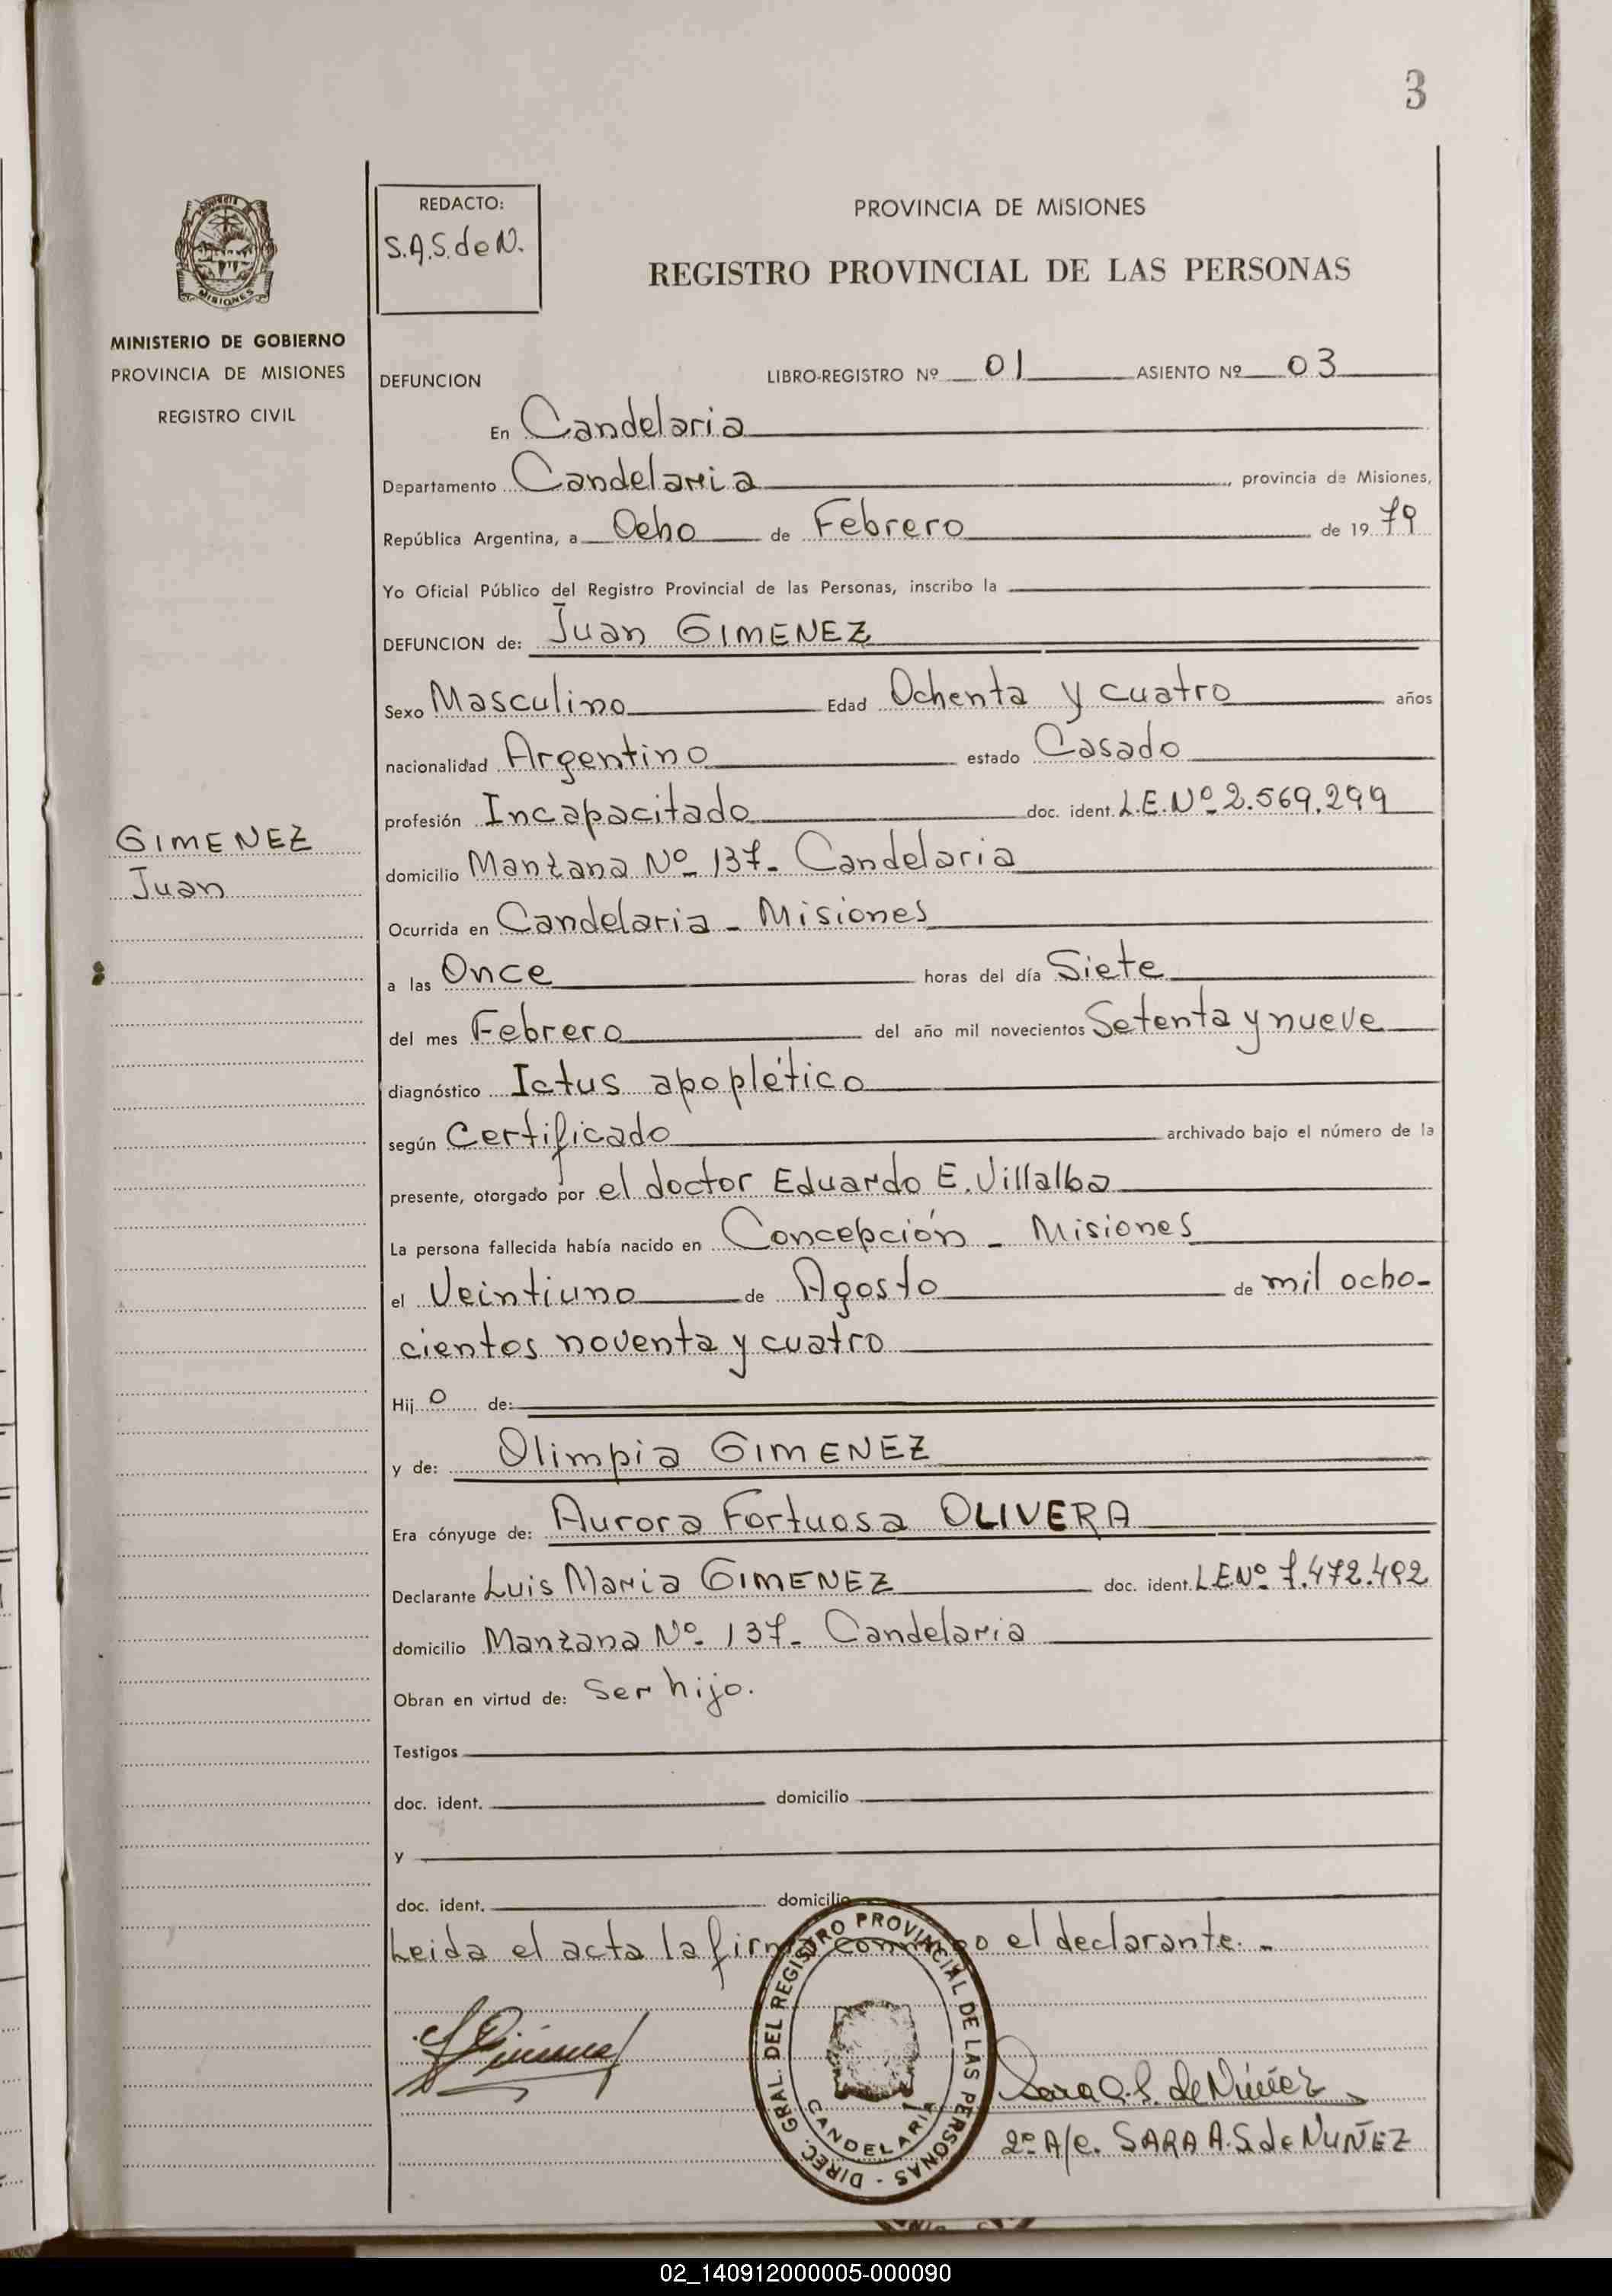 3
PROVINCIA
MISIONES
MINISTERIO DE GOBIERNO
PROVINCIA DE MISIONES
REGISTRO CIVIL
GIMENEZ
Juan
REDACTO:
S.A.S. de N.
PROVINCIA DE MISIONES
REGISTRO PROVINCIAL DE LAS PERSONAS
DEFUNCION LIBRO-REGISTRO Nº 01 ASIENTO Nº 03
En Candelaria
Departamento Candelaria, provincia de Misiones,
República Argentina, a Ocho de Febrero de 1979
Yo Oficial Público del Registro Provincial de las Personas, inscribo la
DEFUNCION de: Juan GIMENEZ
Sexo Masculino Edad Ochenta y cuatro años
nacionalidad Argentino estado Casado
profesión Incapacitado doc. ident. L.E.Nº 2.569.299
domicilio Manzana Nº 137- Candelaria
Ocurrida en Candelaria - Misiones
a las Once horas del día Siete
del mes Febrero del año mil novecientos Setenta y nueve
diagnóstico Ictus apoplético
según Certificado archivado bajo el número de la
presente, otorgado por el doctor Eduardo E. Villalba
La persona fallecida había nacido en Concepción - Misiones
el Veintiuno de Agosto de mil ocho-
cientos noventa y cuatro
Hijo de:
y de: Olimpia GIMENEZ
Era cónyuge de: Aurora Fortuosa OLIVERA
Declarante Luis Maria GIMENEZ doc. ident. L.E.Nº 7.472.492
domicilio Manzana Nº 137- Candelaria
Obran en virtud de: Ser hijo.
Testigos
doc. ident. domicilio
y
doc. ident. domicilio
Leida el acta la firma conmigo el declarante. -
DIREC. GRAL. DEL REGISTRO PROVINCIAL DE LAS PERSONAS -
CANDELARIA
Sara A. S. de Núñez
2º A/c. SARA A. S. de NUÑEZ
02_140912000005-000090